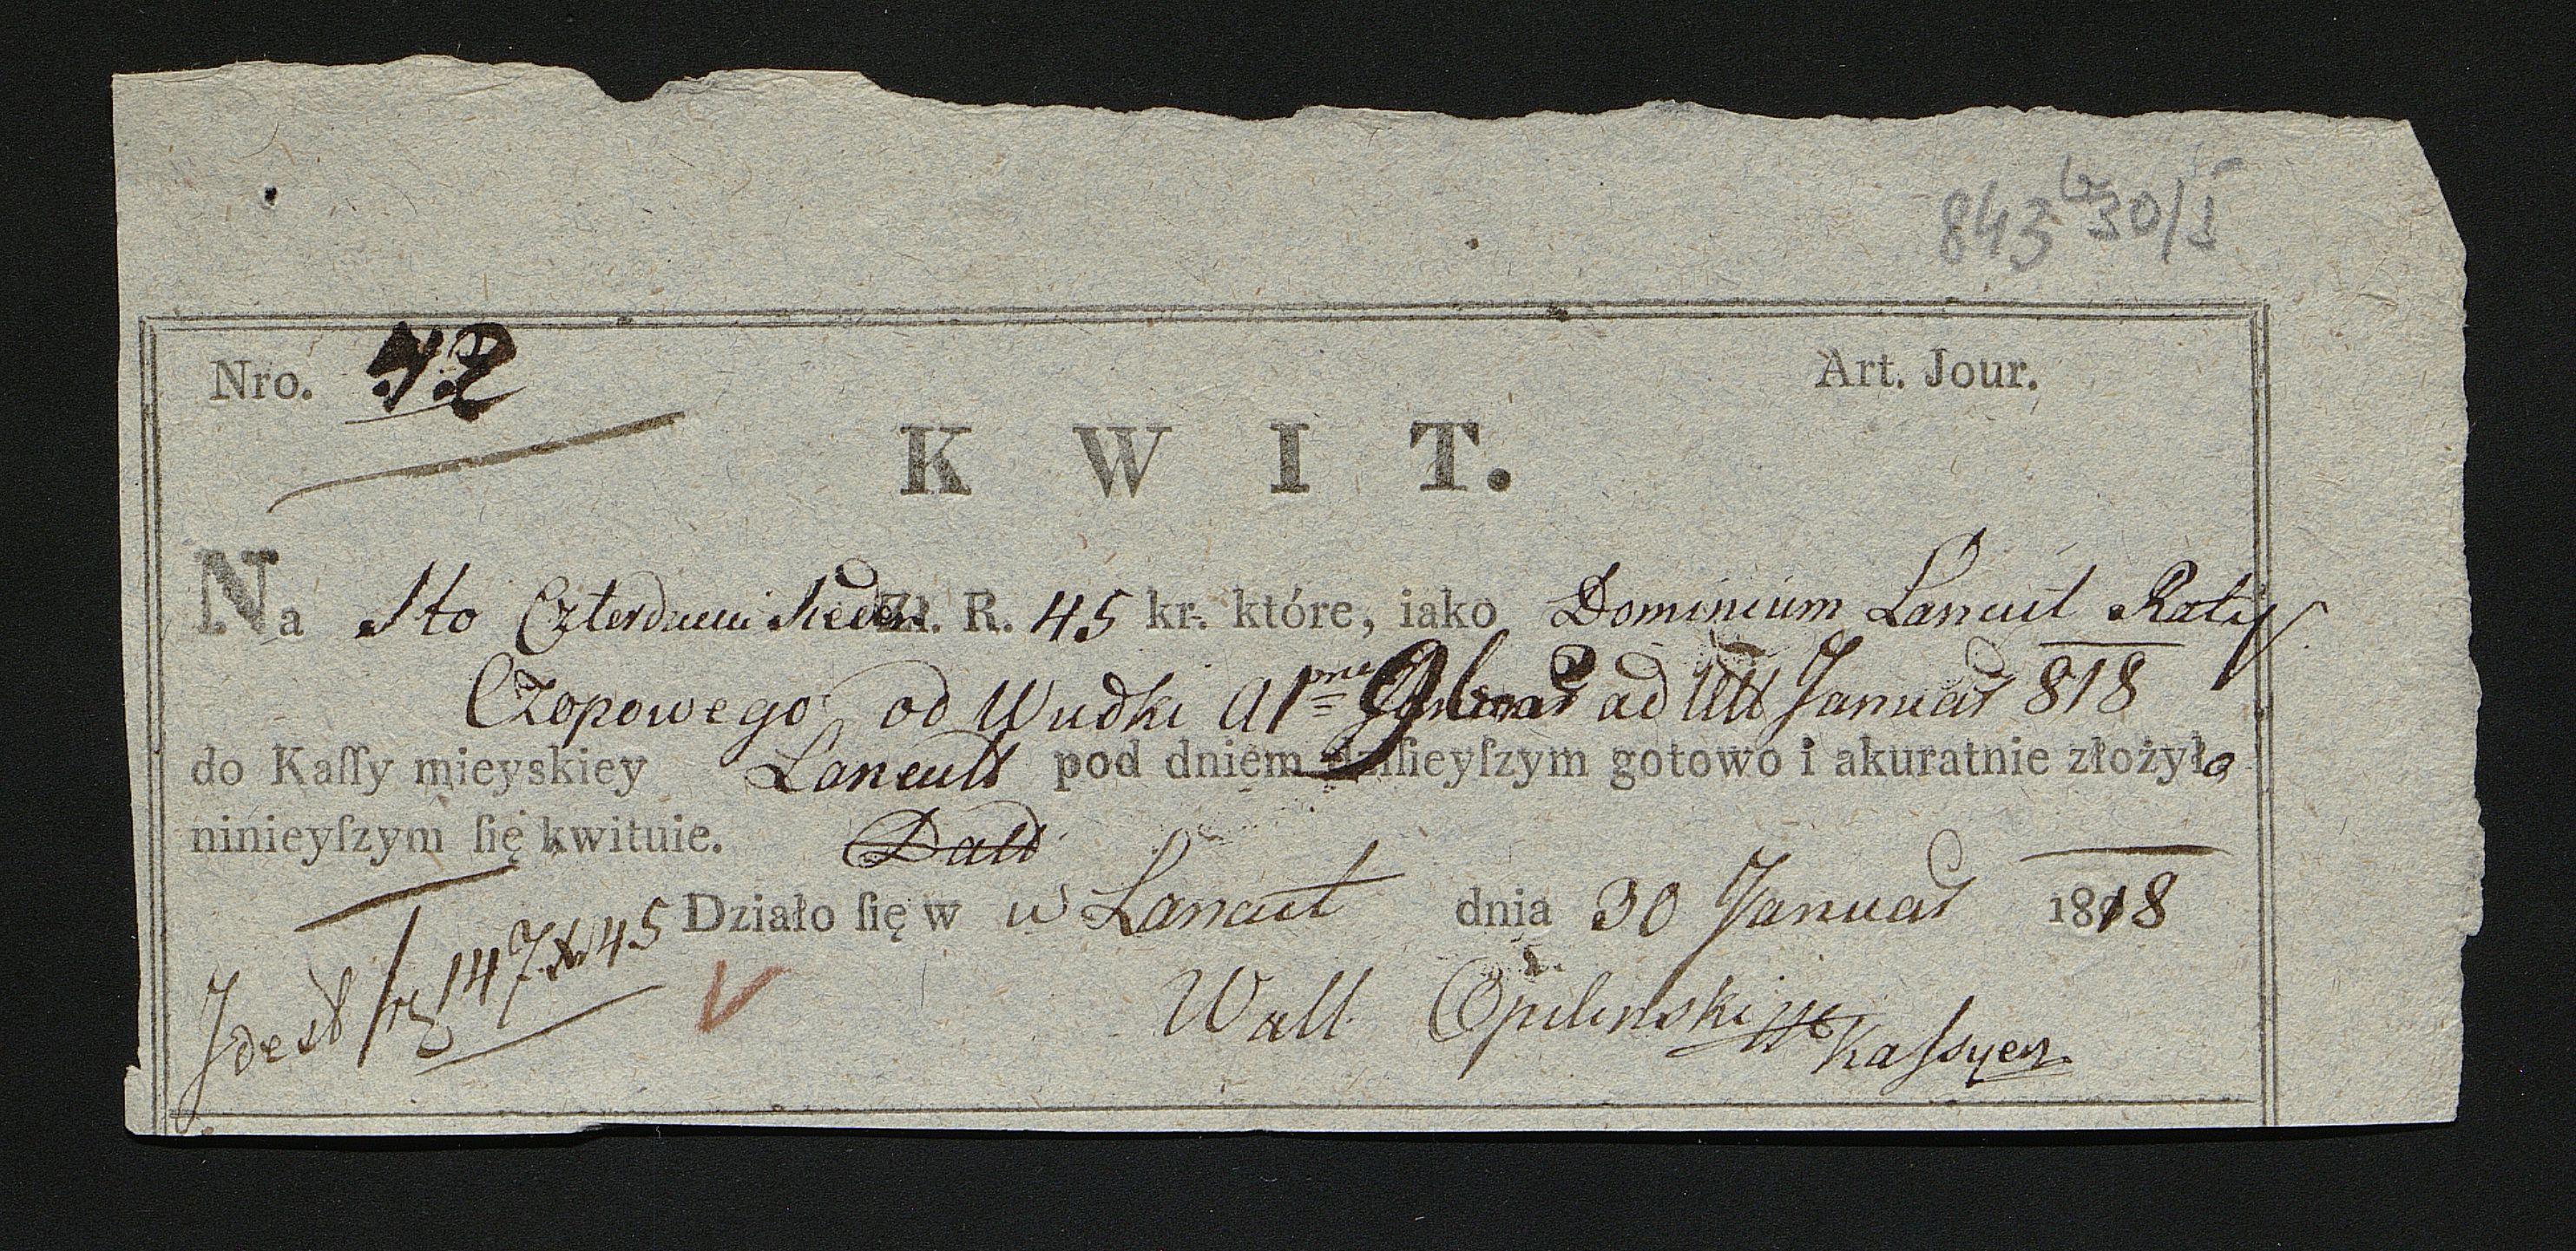 843 30/I
Nro. 42 Art. Jour.
K W I T.
Na Sto Czterdzieści Siedm Zł. R. 45 kr. które, iako Dominium Lancut Raty
Czopowego od Wudki a 1ma 9bris ad Ult Januar 818
do Kaſſy mieyskiey Lancutt pod dniem dziſieyſzym gotowo i akuratnie złożyło
ninieyſzym ſię kwituie.
Działo ſię w w Lancut dnia 30 Januar 1818
Idest fr 147 x 45
Wall Opilinski Kaſsyer